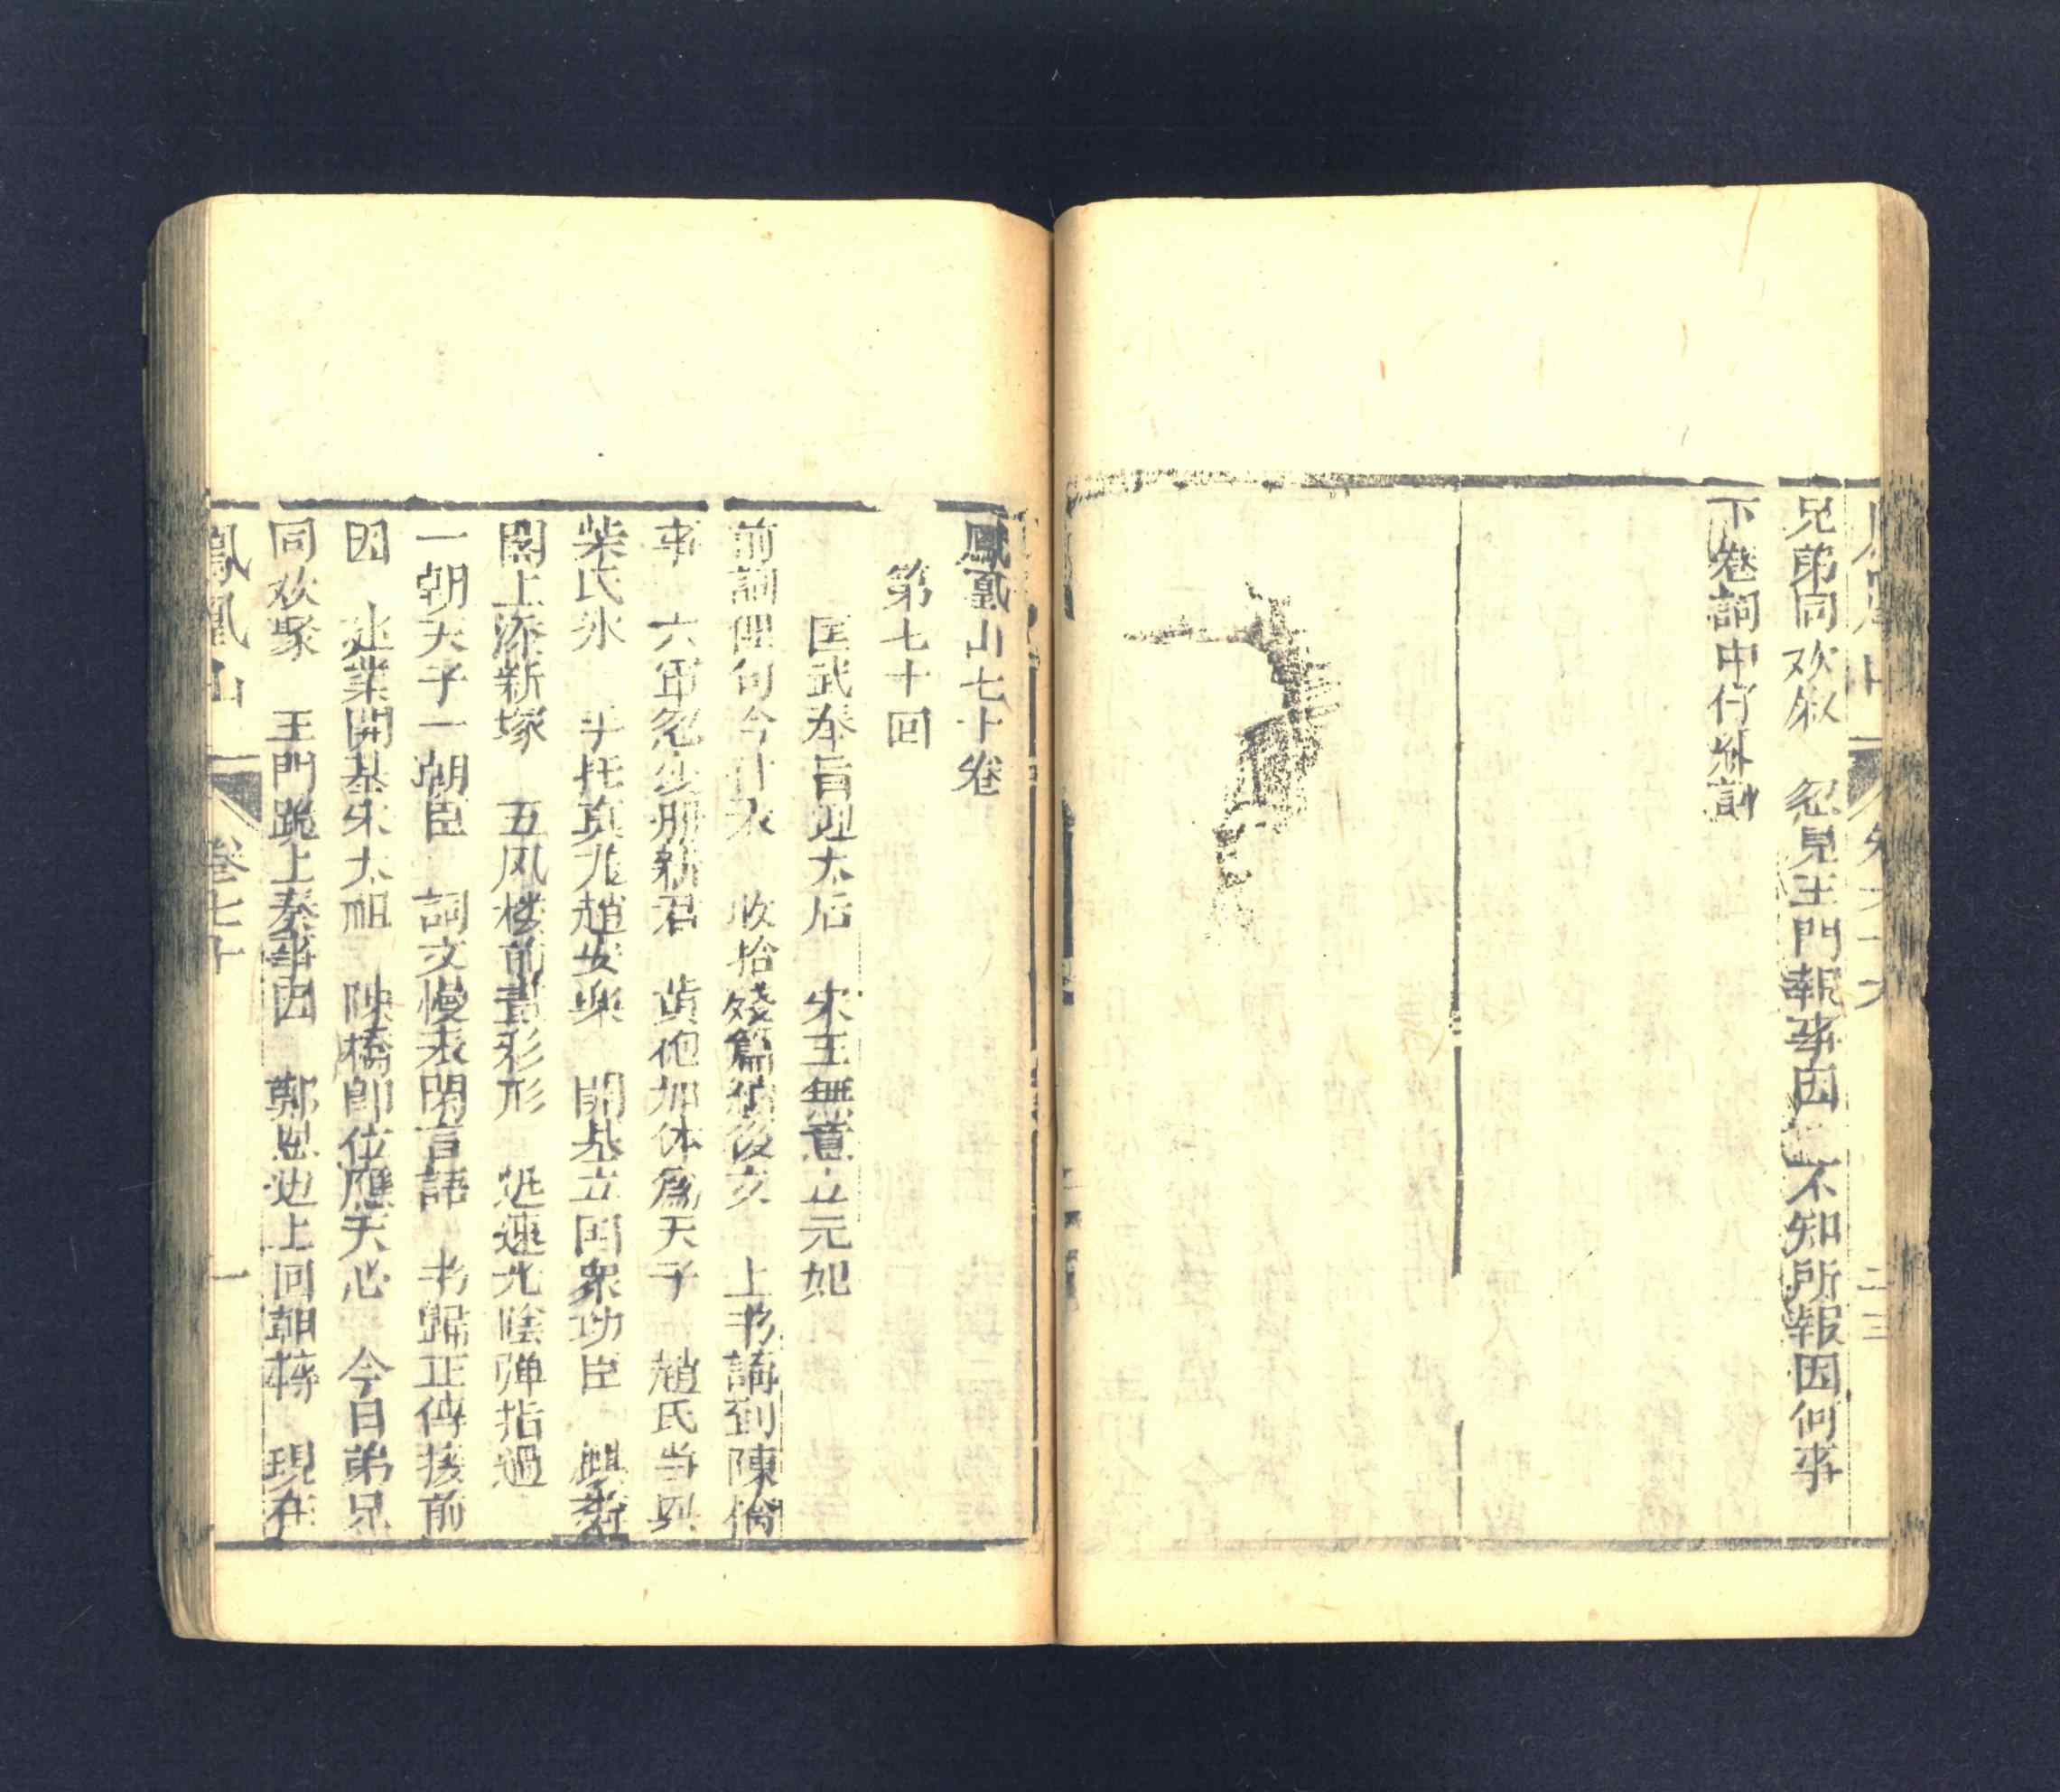 兄弟同欢叙　忽見王門報事因　不知所報因何事
下卷詞中仔細訓
鳳凰山七十卷
第七十回
匡武奉旨迎太后　宋王無意立元妃
前詞俚句今什表　收拾殘篇續後文　上书講到陳倫
事　六军忽変册新君　黄袍加体爲天子　趙氏当兴
柴氏氷　手托真龙趙安樂　開基立囯衆功臣　麒麟
閣上添新塚　五风楼前畫彩形　迅速光陰弹指過
一朝天子一朝臣　詞文慢表閑言語　书歸正傳接前
因　迠業開基宋太祖　陳橋即位應天心　今日弟兄
同欢聚　王門跪上奏事因　鄭恩边上囘朝轉　現在
鳳凰山　卷七十　一